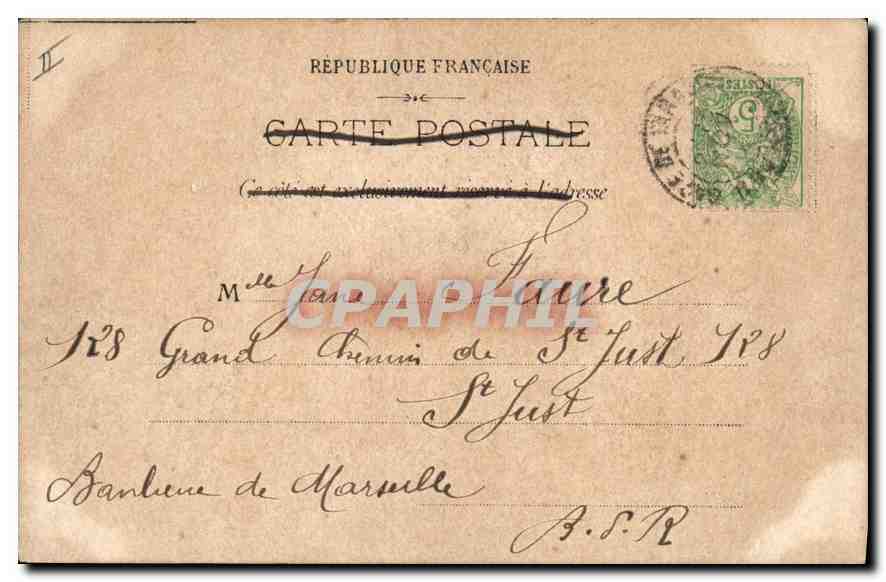 II
RÉPUBLIQUE FRANÇAISE
CARTE POSTALE
Ce côté est exclusivement réservé à l'adresse
POSTES
5
Mlle Jane Faure
CPAPHIL
128 Grand Chemin de St Just, 128
St Just
Banlieue de Marseille
B.d.R